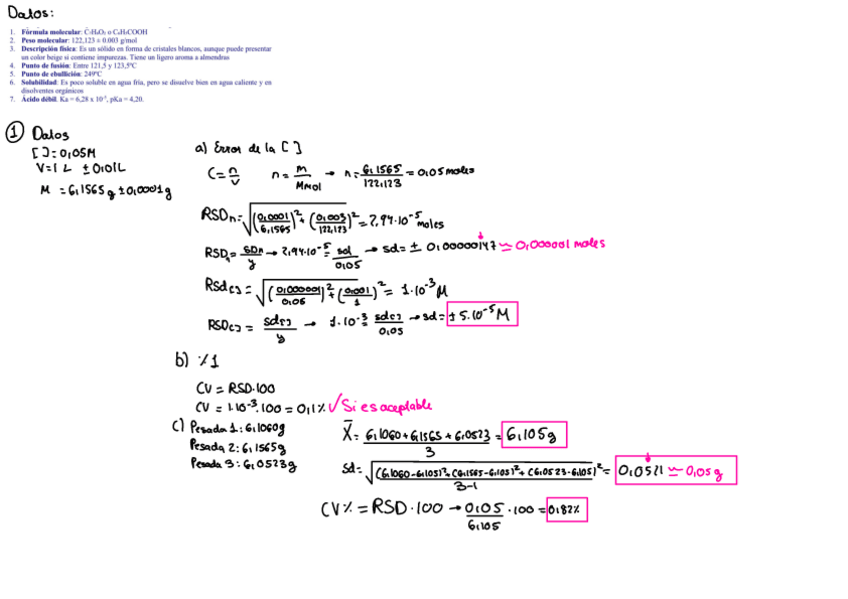 Datos:
1. Fórmula molecular: C₇H₆O₂ o C₆H₅COOH
2. Peso molecular: 122,123 ± 0.003 g/mol
3. Descripción física: Es un sólido en forma de cristales blancos, aunque puede presentar
un color beige si contiene impurezas. Tiene un ligero aroma a almendras
4. Punto de fusión: Entre 121,5 y 123,5ºC
5. Punto de ebullición: 249ºC
6. Solubilidad: Es poco soluble en agua fría, pero se disuelve bien en agua caliente y en
disolventes orgánicos
7. Ácido débil. Ka = 6,28 x 10⁻⁵, pKa = 4,20.
① Datos
[ ]=0,05M
V=1L ±0,01L
M =6,1565g ±0,0001g
a) Error de la [ ]
C=n/V n=m/Mmol → n=6,1565/122,123=0,05 moles
RSDn=√(0,0001/6,1565)²+(0,003/122,123)²=2,94·10⁻⁵ moles
=sDn/y → 2,94·10⁻⁵=sd/0,05 → sd=± 0,00000147 ≃ 0,000001 moles
Rsd[]=√(0,000001/0,05)²+(0,001/1)²= 1·10⁻³M
RSD[]=sd[]/y → 1·10⁻³=sd[]/0,05 → sd=±5·10⁻⁵M
b) %1
CV=RSD·100
CV=1·10⁻³·100=0,1% ✓ Si es aceptable
c) Pesada 1: 6,1060g
Pesada 2: 6,1565g
Pesada 3: 6,0523g
X̄=6,1060+6,1565+6,0523/3=6,105g
sd=√(6,1060-6,105)²+(6,1565-6,105)²+(6,0523-6,105)²/3-1=0,0521≃0,05g
CV%=RSD·100→0,05/6,105·100=0,82%